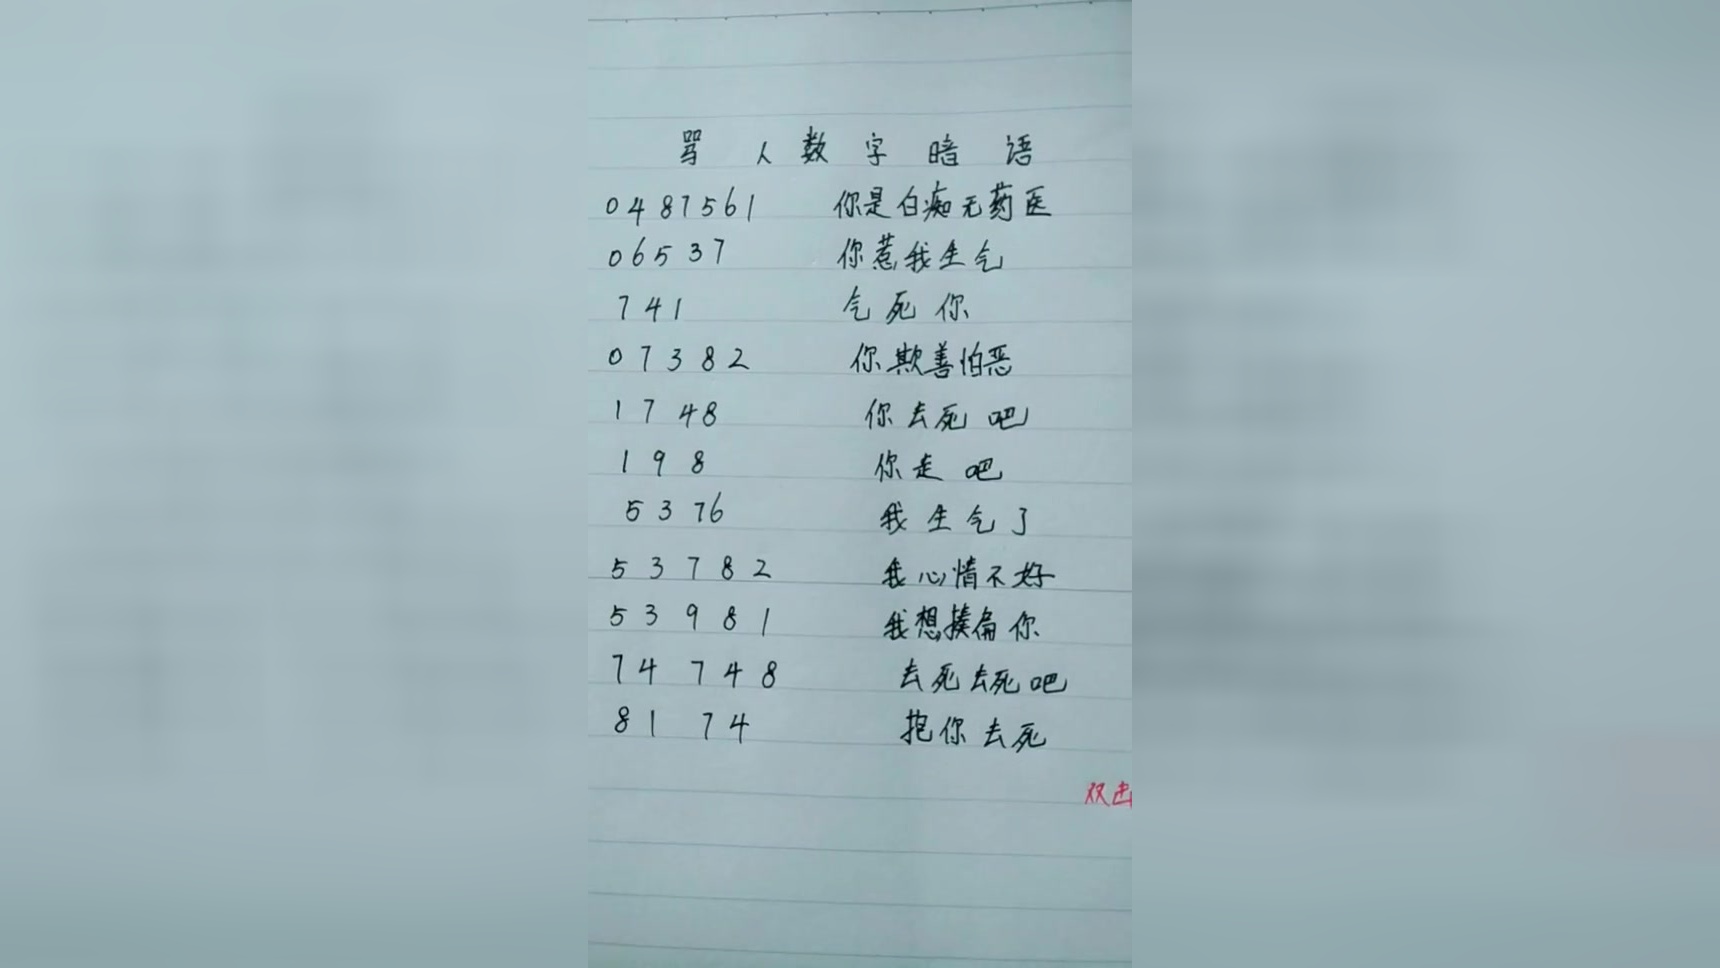 骂人数字暗语
0487561 你是白痴无药医
06537 你惹我生气
741 气死你
07382 你欺善怕恶
1748 你去死吧
198 你走吧
5376 我生气了
53782 我心情不好
53981 我想揍扁你
74 748 去死去死吧
81 74 抱你去死
双击